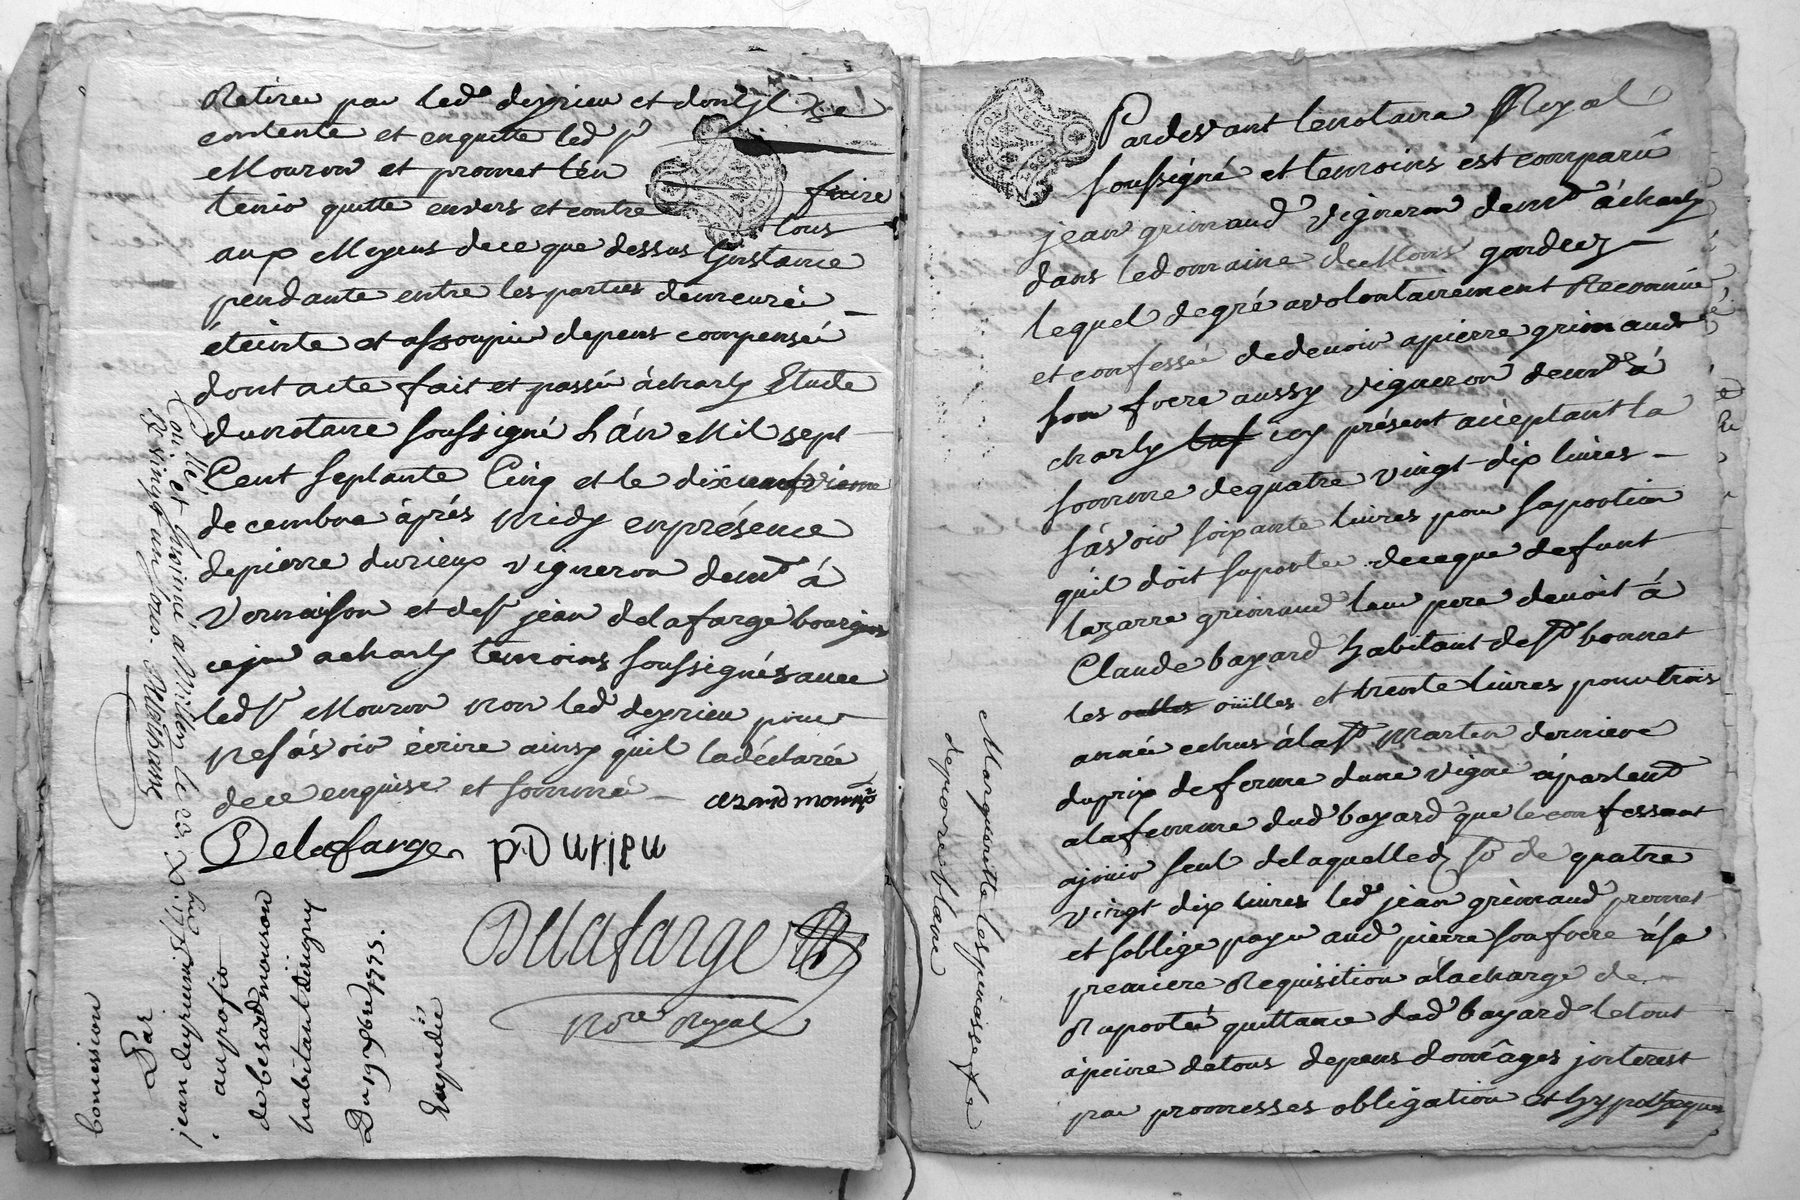 Retiree par led. deyrieu et dont il se
contente et enquitte led Sr
Mouron et promet l'en faire
tenir quitte envers et contre tous
aux Moyens de ce que dessus L'instance
pendante entre les parties demeurée
éteinte et assoupie depens compensé
dont acte fait et passé à charly Etude
du notaire soussigné L'án Mil sept
Cent septante Cinq et le dixneufvieme
decembre áprés midy en présence
de pierre durieux vigneron demt á
Vernaison et de sr jean delafarge bourgeois
ce jour a charly temoins soussignés avec
led Sr Mouron non led deyrieu pour
ne sávoir écrire ainsy quil la déclarée
de ce enquise et sommé
Delafarge p. Durieu
Delafarge
nore Royal
Collé et
vingt un sous.
Concession
Par
jean deyrieu
au profit
de besard mouron
habitant d'irigny
Du 19 xbre 1775.
Expédiée
Pardevant le notaire Royal
soussigné et temoins est comparu
jean grimaud vigneron demt á charly
dans le domaine de Mons gardeez
lequel de gré a volontairement Reconnue
et confessée de devoir a pierre grimaud
son frere aussy vigneron demt á
charly icy présent acceptant la
somme de quatre vingt dix livres
sávoir soixante livres pour sa portion
quil doit suporter de ce que defunt
lazarre grimaud leur pere devoit á
Claude bayard habitant de St bonnet
les oulles oüilles et trente livres pour trois
année echus á la St Martin derniere
du prix de ferme dune vigne apartent
a la femme dud bayard que le confessant
a joüir seul de laquelled. so de quatre
vingt dix livres led jean grimaud promet
et soblige payer aud pierre son frere á sa
premiere Requisition á la charge de
Raporter quittance dud bayard le tout
á peine de tous depens domâges interest
par promesses obligation et hypotheques
Marguerite lespinasse fe
de pierre blanc